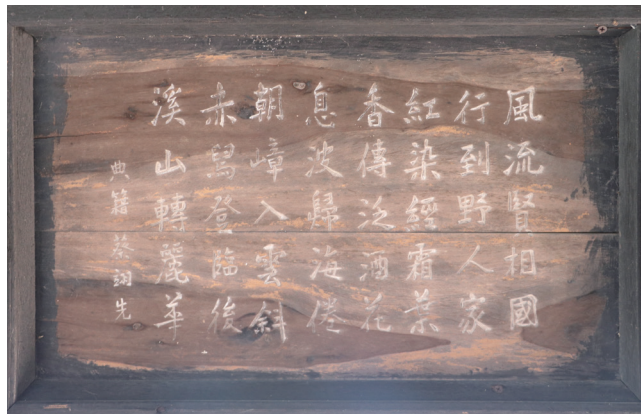 風流賢相國
行到野人家
紅染經霜葉
香傳泛酒花
息波歸海倦
朝嶂入雲斜
赤舃登臨後
溪山轉麗華
典籍蔡翊先